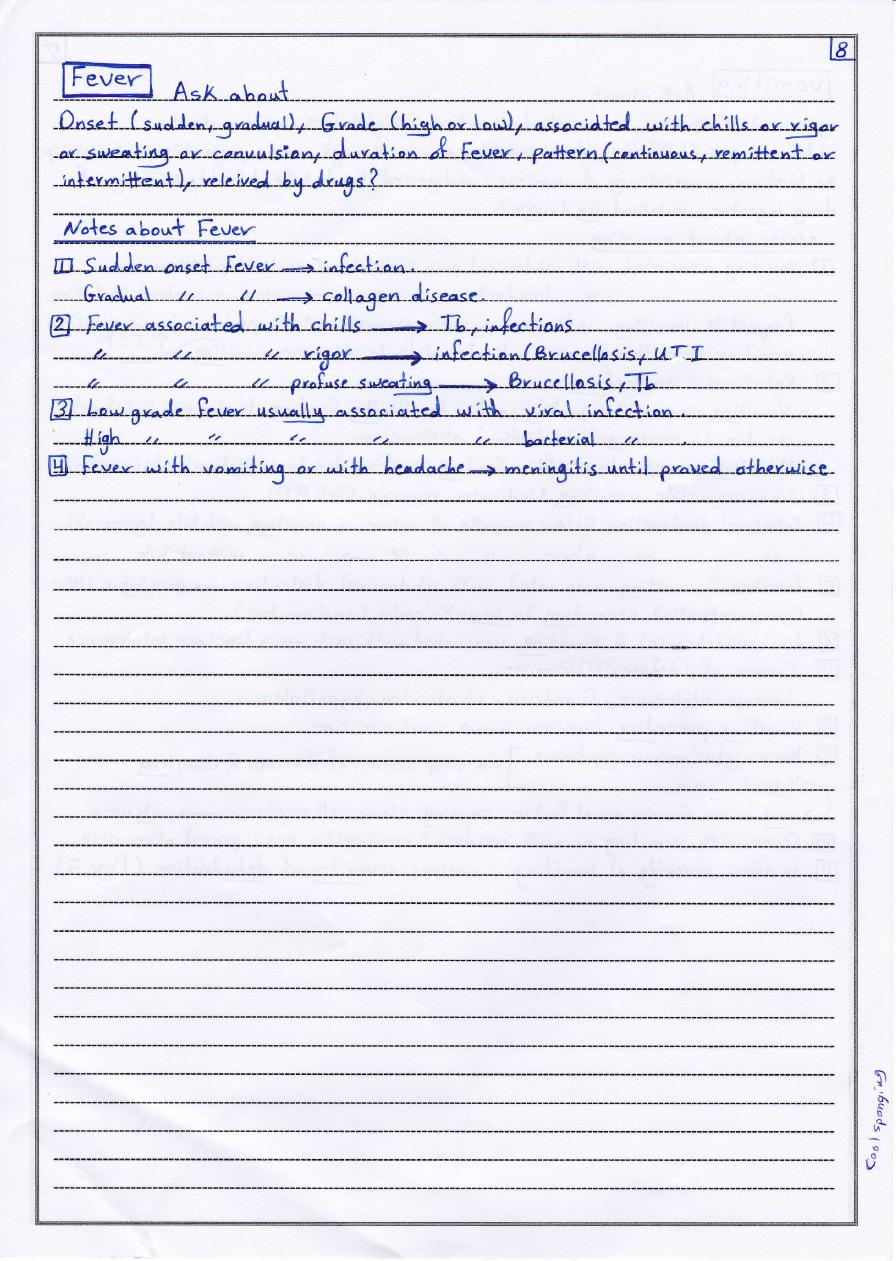 8
Fever Ask about
Onset (sudden, gradual), Grade (high or low), associated with chills or rigor
or sweating or convulsion, duration of Fever, pattern (continuous, remittent or
intermittent), releived by drugs?
Notes about Fever
1 Sudden onset Fever → infection.
Gradual " " → collagen disease.
2 Fever associated with chills → Tb, infections
" " " rigor → infection (Brucellosis, UTI
" " " profuse sweating → Brucellosis, Tb
3 Low grade fever usually associated with viral infection.
High " " " " " bacterial " .
4 Fever with vomiting or with headache → meningitis until proved otherwise